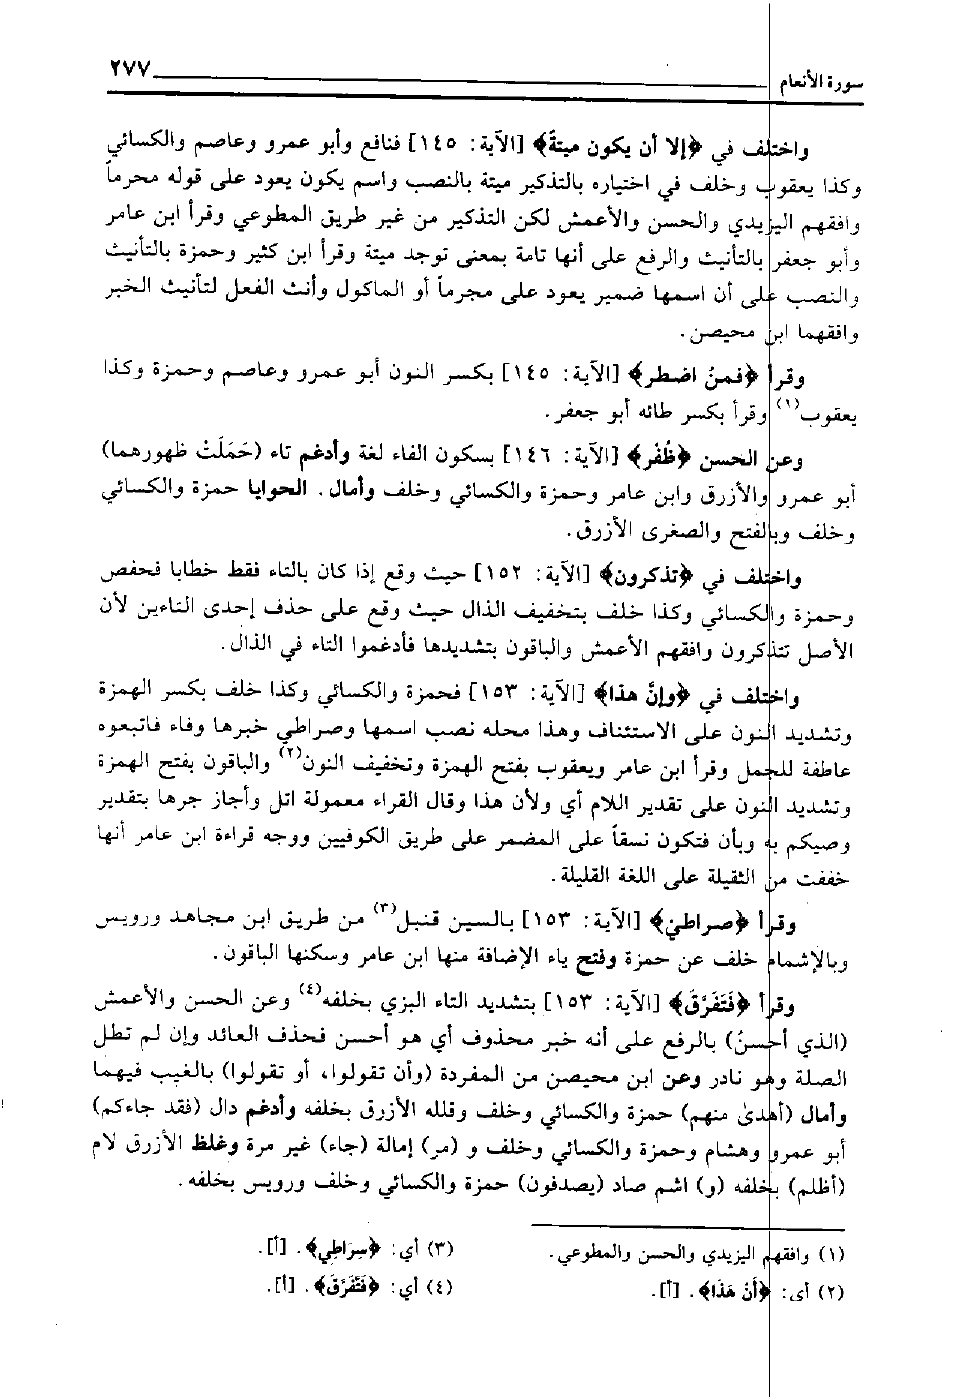 سورة الأنعام ٢٧٧
واختلف في ﴿إلا أن يكون ميتةً﴾ [الآية: ١٤٥] فنافع وأبو عمرو وعاصم والكسائي
وكذا يعقوب وخلف في اختياره بالتذكير ميتة بالنصب واسم يكون يعود على قوله محرماً
وافقهم اليزيدي والحسن والأعمش لكن التذكير من غير طريق المطوعي وقرأ ابن عامر
وأبو جعفر بالتأنيث والرفع على أنها تامة بمعنى توجد ميتة وقرأ ابن كثير وحمزة بالتأنيث
والنصب على أن اسمها ضمير يعود على محرماً أو الماكول وأنث الفعل لتأنيث الخبر
وافقهما ابن محيصن.
وقرأ ﴿فمنُ اضطر﴾ [الآية: ١٤٥] بكسر النون أبو عمرو وعاصم وحمزة وكذا
يعقوب(١) وقرأ بكسر طائه أبو جعفر.
وعن الحسن ﴿ظُفْر﴾ [الآية: ١٤٦] بسكون الفاء لغة وأدغم تاء (حَمَلَتْ ظهورهما)
أبو عمرو والأزرق وابن عامر وحمزة والكسائي وخلف وأمال. الحوايا حمزة والكسائي
وخلف وبالفتح والصغرى الأزرق.
واختلف في ﴿تذكرون﴾ [الآية: ١٥٢] حيث وقع إذا كان بالتاء فقط خطابا فحفص
وحمزة والكسائي وكذا خلف بتخفيف الذال حيث وقع على حذف إحدى التاءين لأن
الأصل تتذكرون وافقهم الأعمش والباقون بتشديدها فأدغموا التاء في الذال.
واختلف في ﴿وإنَّ هذا﴾ [الآية: ١٥٣] فحمزة والكسائي وكذا خلف بكسر الهمزة
وتشديد النون على الاستئناف وهذا محله نصب اسمها وصراطي خبرها وفاء فاتبعوه
عاطفة للجمل وقرأ ابن عامر ويعقوب بفتح الهمزة وتخفيف النون(٢) والباقون بفتح الهمزة
وتشديد النون على تقدير اللام أي ولأن هذا وقال القراء معمولة اتل وأجاز جرها بتقدير
وصيكم به وبأن فتكون نسقاً على المضمر على طريق الكوفيين ووجه قراءة ابن عامر أنها
خففت من الثقيلة على اللغة القليلة.
وقرأ ﴿صراطيَ﴾ [الآية: ١٥٣] بالسين قنبل(٣) من طريق ابن مجاهد ورويس
وبالإشمام خلف عن حمزة وفتح ياء الإضافة منها ابن عامر وسكنها الباقون.
وقرأ ﴿فَتَفَرَّقَ﴾ [الآية: ١٥٣] بتشديد التاء البزي بخلفه(٤) وعن الحسن والأعمش
(الذي أحسنُ) بالرفع على أنه خبر محذوف أي هو أحسن فحذف العائد وإن لم تطل
الصلة وهو نادر وعن ابن محيصن من المفردة (وأن تقولوا، أو تقولوا) بالغيب فيهما
وأمال (أهدىٰ منهم) حمزة والكسائي وخلف وقلله الأزرق بخلفه وأدغم دال (فقد جاءكم)
أبو عمرو وهشام وحمزة والكسائي وخلف و (مر) إمالة (جاء) غير مرة وغلظ الأزرق لام
(أظلم) بخلفه (و) اشم صاد (يصدفون) حمزة والكسائي وخلف ورويس بخلفه.
(١) وافقهم اليزيدي والحسن والمطوعي.
(٢) أي: ﴿أَنْ هَذَا﴾. [أ].
(٣) أي: ﴿سِرَاطِي﴾. [أ].
(٤) أي: ﴿فَتَّفَرَّقَ﴾. [أ].